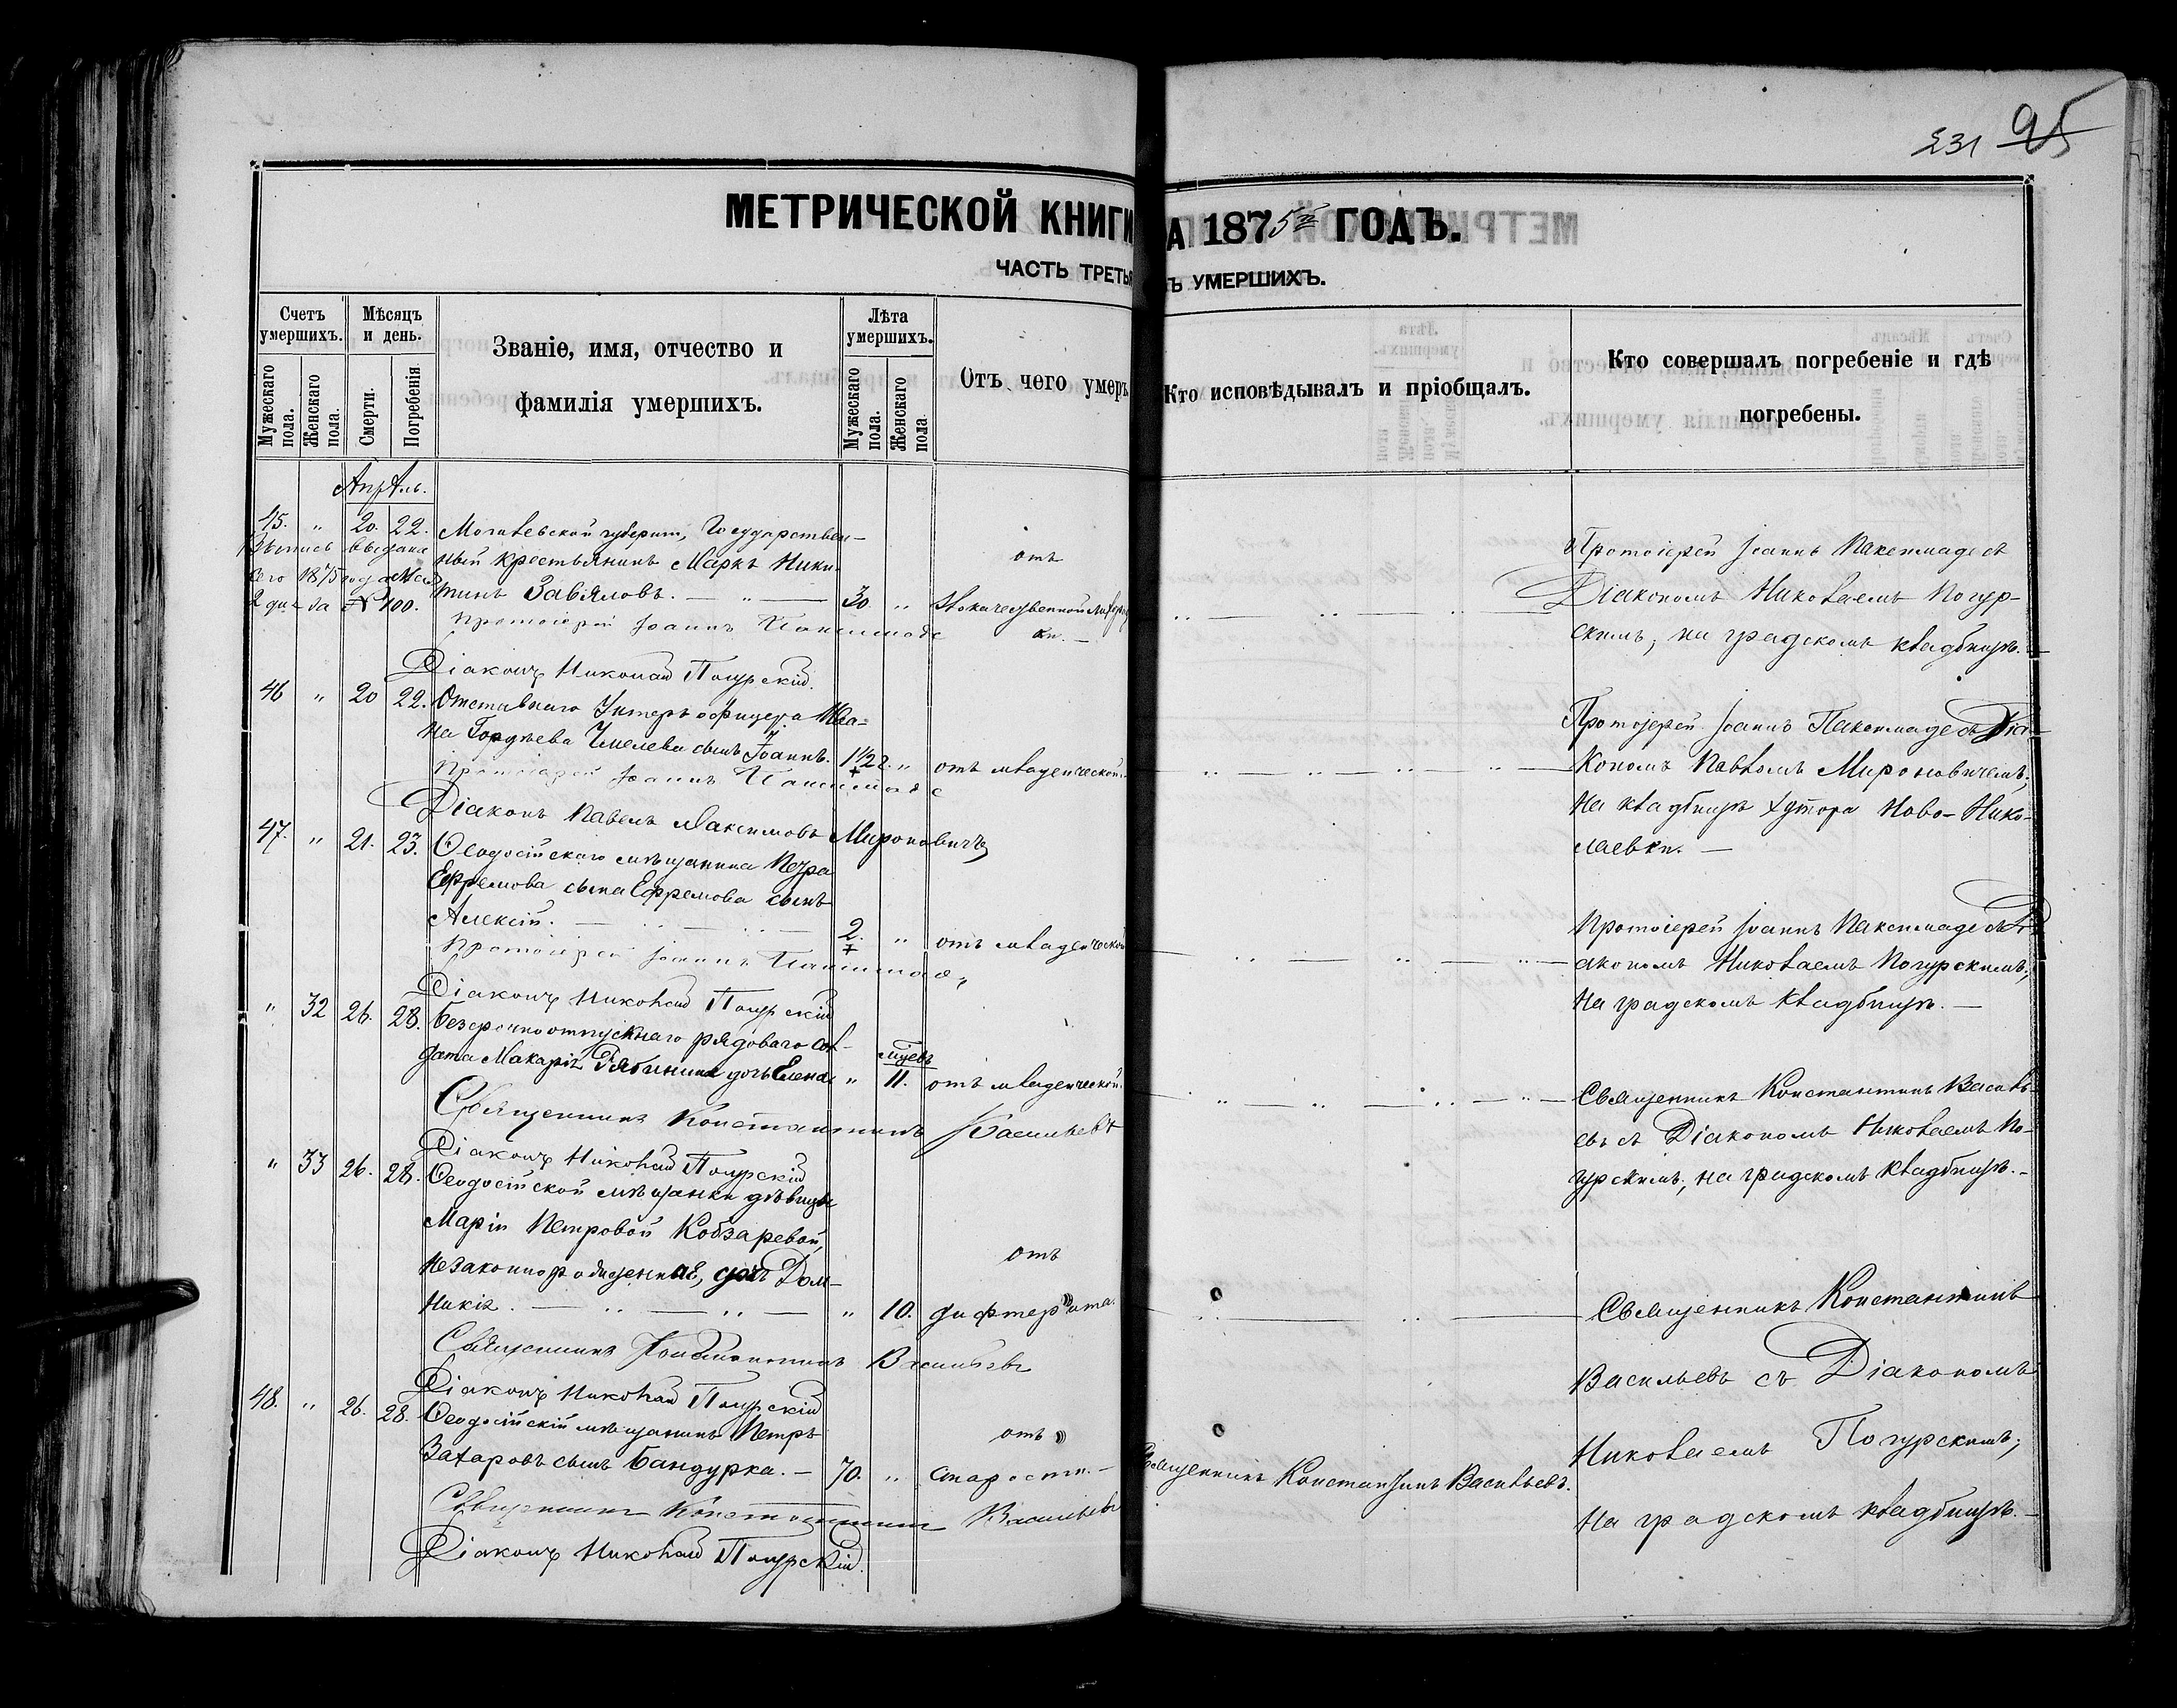 231 95
МЕТРИЧЕСКОЙ КНИГИ
А 1875й ГОДЪ.
ЧАСТЬ ТРЕТЬЯ
Ъ УМЕРШИХЪ.
Счетъ умершихъ.
Мужескаго пола.
Женскаго пола.
Мѣсяцъ и день.
Смерти.
Погребенія
Званіе, имя, отчество и
фамилія умершихъ.
Лѣта умершихъ.
Мужескаго пола.
Женскаго пола
Отъ чего умеръ
Кто исповѣдывалъ и пріобщалъ.
Кто совершалъ погребеніе и гдѣ
погребены.
Апрѣль.
45. " 20. 22. Могилевской губерніи, Государствен-
Выпись выдана
ный крестьянинъ Маркъ Ники-
отъ
сего 1875 года Мая
тинъ Завяловъ. 30. "
2 дня за № 100.
Протоіерей Іоаннъ
Діаконъ Николай Погурскій.
Протоіерей Іоаннъ Паксимаде съ
Діакономъ Николаемъ Погур-
скимъ, на градскомъ кладбищѣ.
46 " 20 22. Отставнаго Унтеръ офицера Ива-
на Гордѣева Чмелева сынъ Іоаннъ. 1 1/2 г. " отъ младенческой.
Протоіерей Іоаннъ
Діаконъ Павелъ Максимовъ Мироновичъ
Протоіерей Іоаннъ Паксимаде съ Діа-
кономъ Павломъ Мироновичемъ;
на кладбищѣ хутора Ново-Нико-
лаевки.
47. " 21. 23. Ѳеодосійскаго мѣщанина Петра
Ефремова сына Ефремова сынъ
Алексій. 2. " отъ младенческой
Протоіерей Іоаннъ
Діаконъ Николай Погурскій
Протоіерей Іоаннъ Паксимаде съ Ді-
акономъ Николаемъ Погурскимъ;
на градскомъ кладбищѣ.
" 32 26. 28. Безсрочноотпускнаго рядоваго сол-
дата Макарія Рябинина дочь Елена " 11. отъ младенческой.
Священникъ Константинъ Васильевъ
Діаконъ Николай Погурскій
Священникъ Константинъ Василь-
евъ съ Діакономъ Николаемъ По-
гурскимъ, на градскомъ кладбищѣ.
" 33 26. 28. Ѳеодосійской мѣщанки дѣвицы
Маріи Петровой Кобзаревой,
незаконнорожденная, дочь Дом-
никія. " 10. отъ дифтерита.
Священникъ Константинъ Васильевъ
Діаконъ Николай Погурскій
Священникъ Константинъ
Васильевъ съ Діакономъ
Николаемъ Погурскимъ;
на градскомъ кладбищѣ.
48. " 26. 28. Ѳеодосійскій мѣщанинъ Петръ
Захаровъ сынъ Бандурка. 70. " отъ старости.
Священникъ Константинъ Васильевъ.
Священникъ Константинъ Васильевъ
Діаконъ Николай Погурскій.